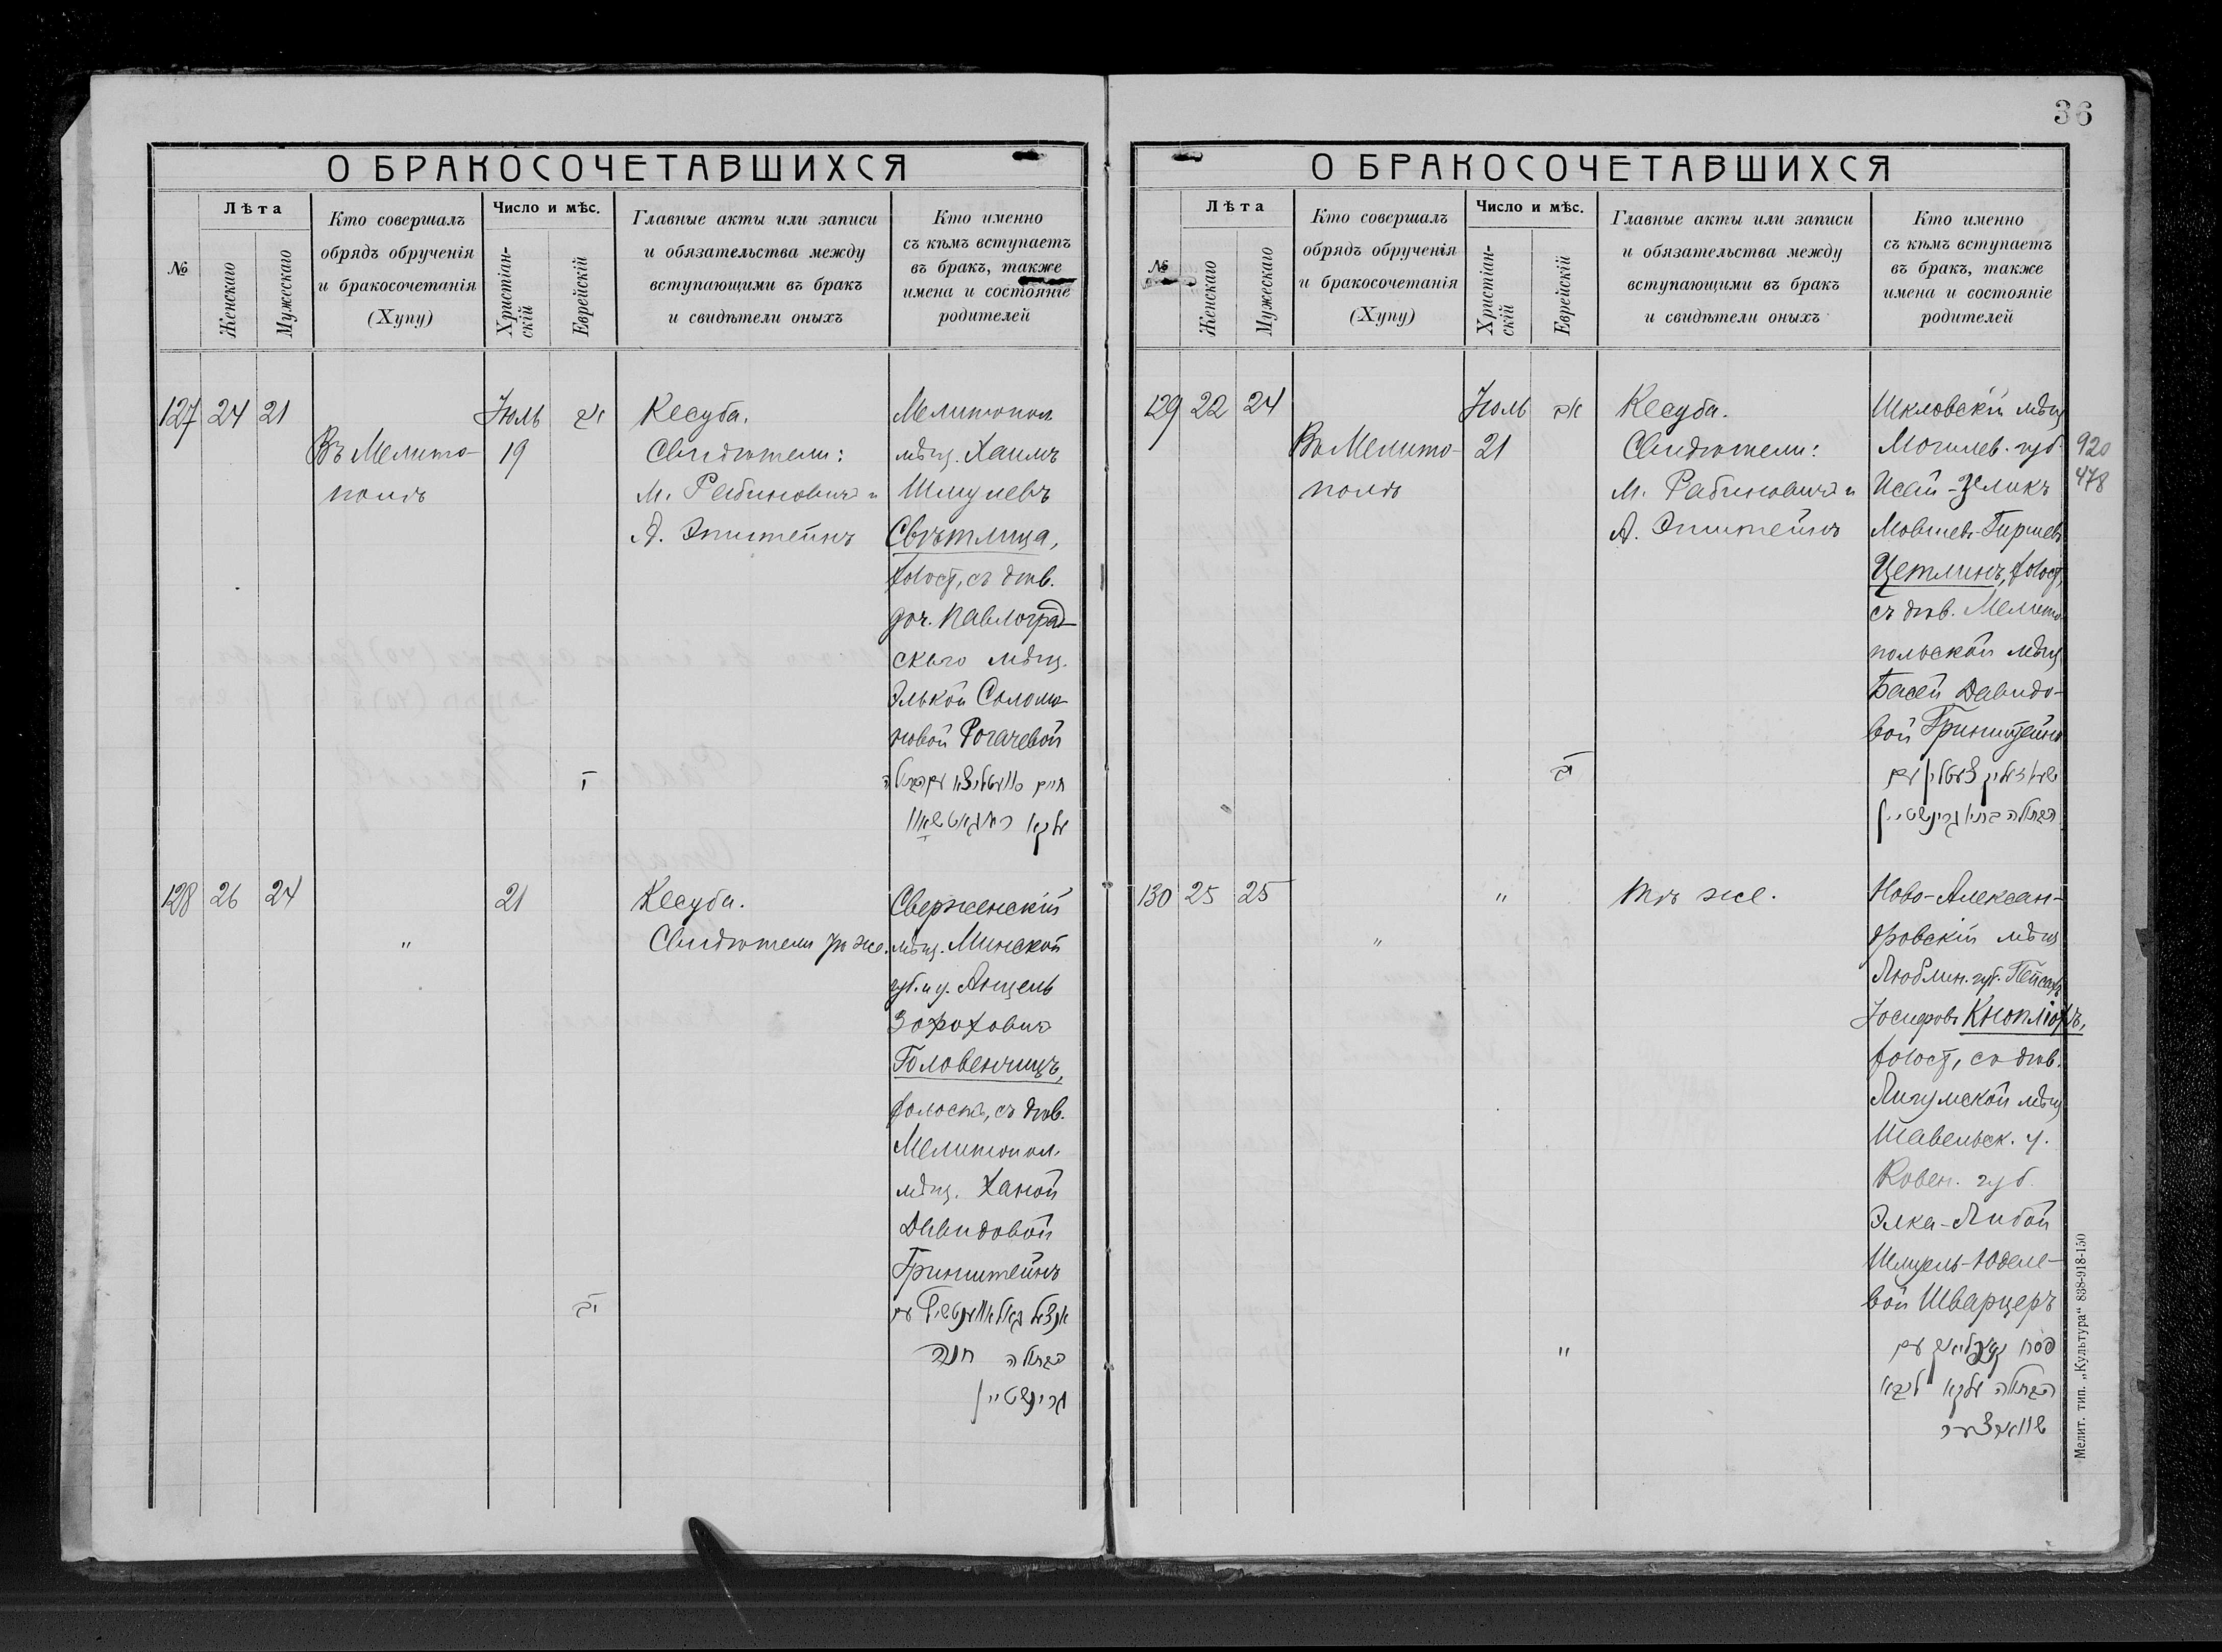 36
О БРАКОСОЧЕТАВШИХСЯ
№
Лѣта
Женскаго
Мужескаго
Кто совершалъ
обрядъ обрученія
и бракосочетанія
(Хупу)
Число и мѣс.
Христіан-
скій
Еврейскій
Главные акты или записи
и обязательства между
вступающими въ бракъ
и свидѣтели оныхъ
Кто именно
съ кѣмъ вступаетъ
въ бракъ, также
имена и состояніе
родителей
127 24 21
Въ Мелито-
полѣ
Іюль
19
Кесуба.
Свидѣтели:
М. Рабиновичъ и
А. Эпштейнъ
Мелитопол.
мѣщ. Хаимъ
Шмулевъ
Свѣтлица,
холост, съ дѣв.
доч. Павлоград-
скаго мѣщ.
Элькой Соломо-
новой Рогачевой
חיים
128 26 24
"
21
Кесуба.
Свидѣтели тѣ же.
Сверженскій
мѣщ. Минской
губ. и у. Анцель
Зороховичъ
Головенчицъ,
холостъ, съ дѣв.
Мелитопол.
мѣщ. Ханой
Давидовой
Гринштейнъ
הבתולה חנה
גרינשטיין
О БРАКОСОЧЕТАВШИХСЯ
№
Лѣта
Женскаго
Мужескаго
Кто совершалъ
обрядъ обрученія
и бракосочетанія
(Хупу)
Число и мѣс.
Христіан-
скій
Еврейскій
Главные акты или записи
и обязательства между
вступающими въ бракъ
и свидѣтели оныхъ
Кто именно
съ кѣмъ вступаетъ
въ бракъ, также
имена и состояніе
родителей
129 22 24
Въ Мелито-
полѣ
Іюль
21
Кесуба.
Свидѣтели:
М. Рабиновичъ и
А. Эпштейнъ
Шкловскій мѣщ
Могилев. губ.
Исай-Зеликъ
Мовшевъ-Гиршевъ
Цетлинъ, холост,
съ дѣв. Мелито-
польской мѣщ
Басей Давидо-
вой Гринштейнъ
צעטלין עם
הבתולה גרינשטיין
920
478
130 25 25
"
"
Тѣ же.
Ново-Алексан-
дровскій мѣщ
Люблин. губ. Пейсахъ
Іосифовъ Кнопліохъ,
холост, съ дѣв.
Лигумской мѣщ
Шавельск. у.
Ковен. губ.
Элка-Либой
Шмуель-Юделе-
вой Шварцеръ
"
פסח עם
הבתולה עלקא ליבא
Мелит. тип. „Культура" 838-918-150